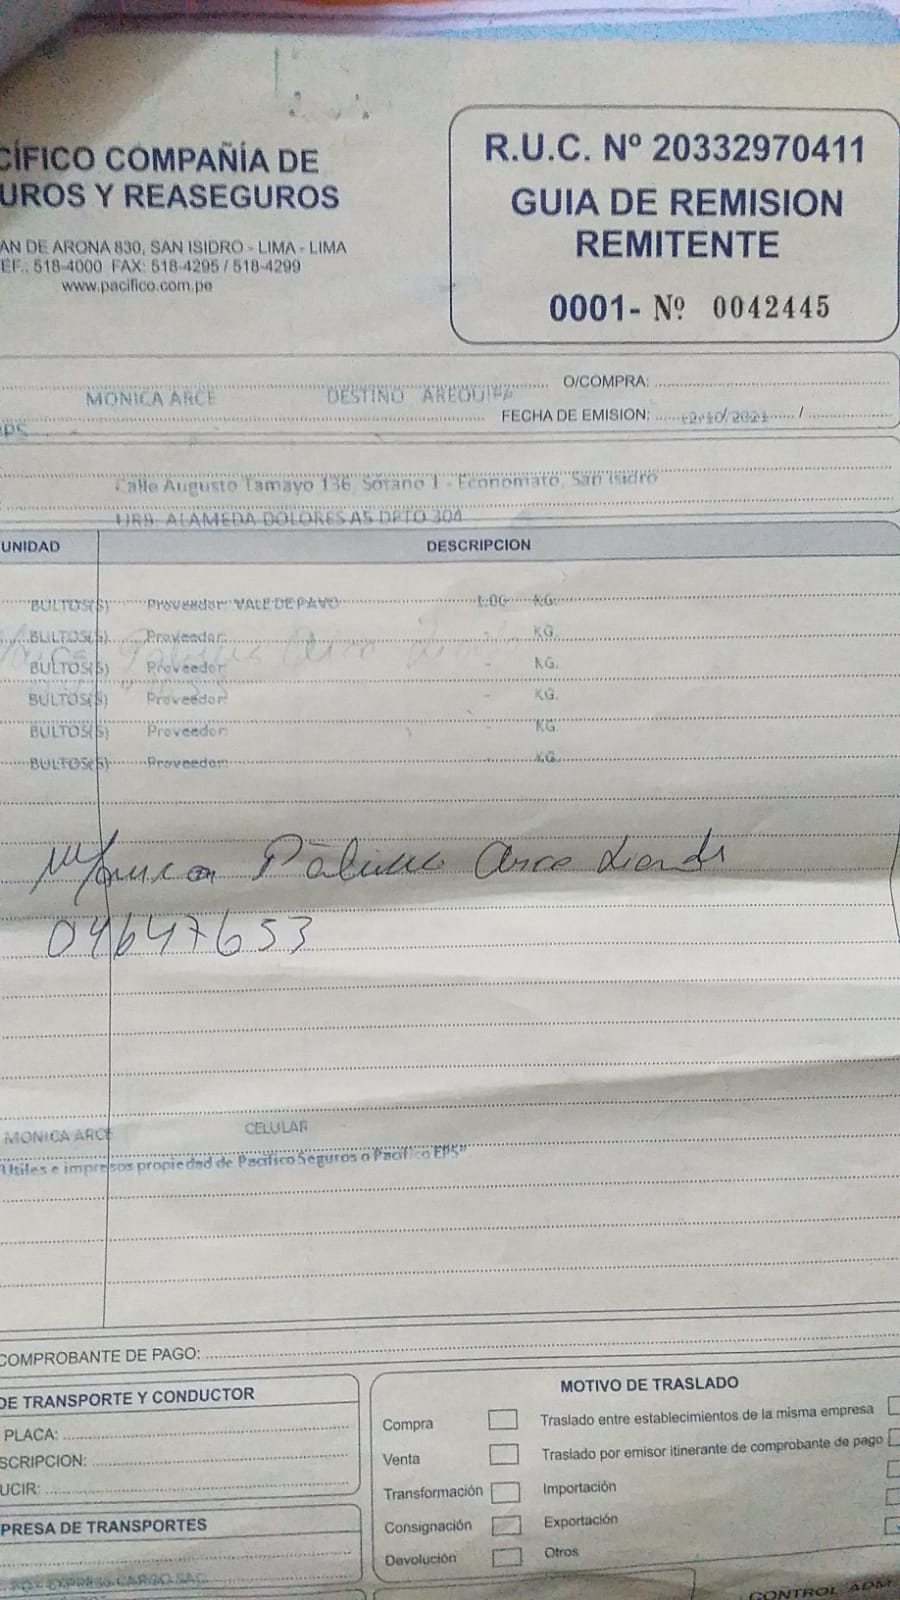 CÍFICO COMPAÑÍA DE
UROS Y REASEGUROS
AN DE ARONA 830, SAN ISIDRO - LIMA - LIMA
EF.: 518-4000 FAX: 518-4295 / 518-4299
www.pacifico.com.pe
R.U.C. Nº 20332970411
GUIA DE REMISION
REMITENTE
0001- Nº 0042445
O/COMPRA:
MONICA ARCE DESTINO AREQUIPA
FECHA DE EMISION: 12/10/2021 /
Calle Augusto Tamayo 136, Sotano 1 - Economato, San Isidro
URB. ALAMEDA DOLORES A5 DPTO 304
UNIDAD DESCRIPCION
BULTOS(S) Proveedor: VALE DE PAVO 1.00 KG.
BULTOS(S) Proveedor: - KG.
BULTOS(S) Proveedor: - KG.
BULTOS(S) Proveedor: - KG.
BULTOS(S) Proveedor: - KG.
BULTOS(S) Proveedor: KG.
Arce
04647653
MONICA ARCE CELULAR
Utiles e impresos propiedad de Pacífico Seguros o Pacífico EPS"
COMPROBANTE DE PAGO:
DE TRANSPORTE Y CONDUCTOR
PLACA:
SCRIPCION:
UCIR:
PRESA DE TRANSPORTES
EXPRESS CARGO SAC
MOTIVO DE TRASLADO
Compra Traslado entre establecimientos de la misma empresa
Venta Traslado por emisor itinerante de comprobante de pago
Transformación Importación
Consignación Exportación
Devolución Otros
CONTROL ADM